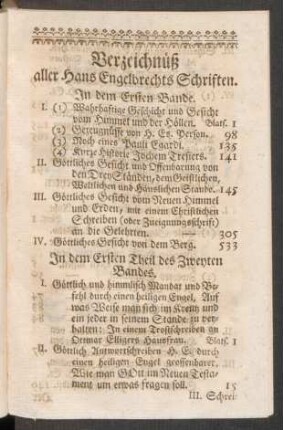 Verzeichnüß
aller Hans Engelbrechts Schriften.
In dem Ersten Bande.
I. (1) Wahrhaftige Geschicht und Gesicht
vom Himmel und der Höllen. Blatt. 1
(2) Gezeugnüsse von H. E. Person. 98
(3) Noch eines Pauli Egardi. 135
(4) Kurze Historie Jochem 141
II. Göttliches Gesicht und Offenbarung von
den Drey Ständen, dem Geistlichen,
Weltlichen und Häuslichen Stande. 145
III. Göttliches Gesicht vom Neuen Himmel
und Erden, mit einem Christlichen
Schreiben (oder Zueignungsschrift)
an die Gelehrten. 305
IV. Göttliches Gesicht von dem Berg. 533
In dem Ersten Theil des Zweyten
Bandes.
I. Göttlich und himmlisch Mandat und Be-
fehl durch einen heiligen Engel, Auf
was Weise man sich im Kreutz und
ein jeder in seinem Stande zu ver-
halten: In einem Trostschreiben an
Ottmar Elligers Hausfrau. Blatt. 1
II. Göttlich Antwortschreiben H. E. durch
einen heiligen Engel geoffenbaret,
Wie man GOtt im Neuen Testa-
ment um etwas fragen soll. 15
III. Schrei-